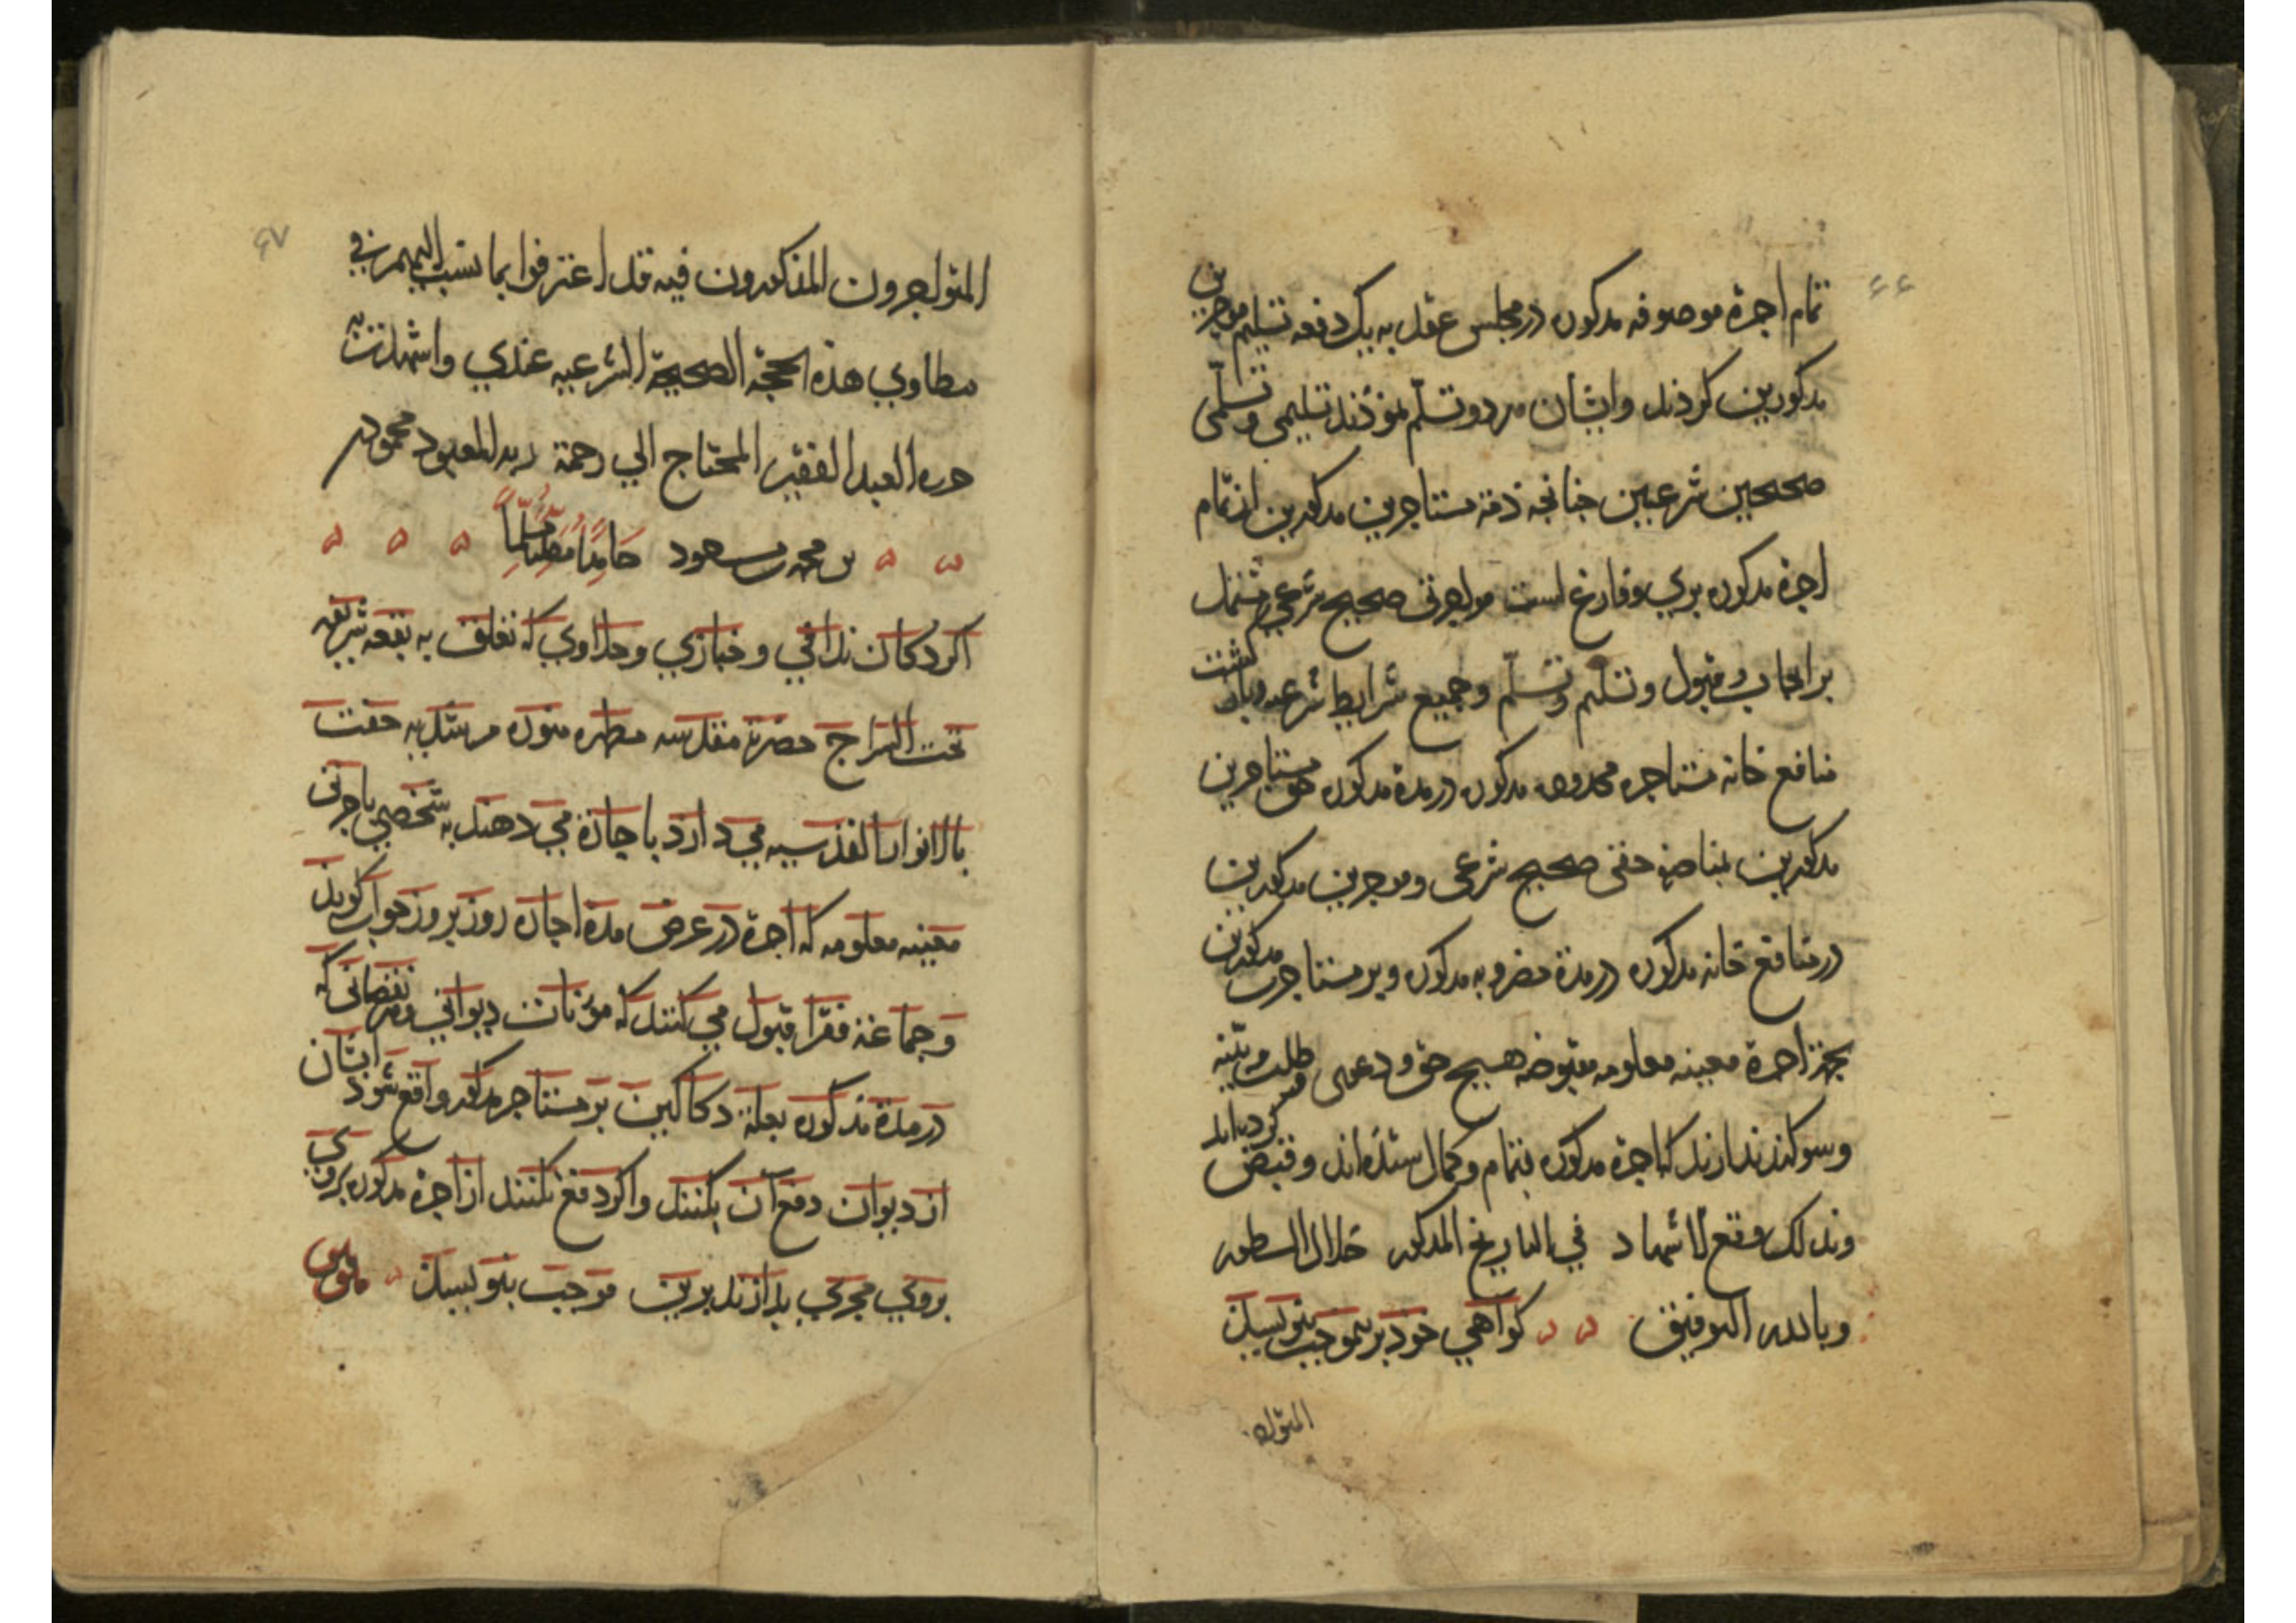 ۶۶
تمام اجرة موصوفه مذکوره در مجلس عقد به یک دفعه تسلیم موجرین
مذکورین کردند و ایشان هردو تسلّم نمودند تسلیمی و تسلّمی
صحیحین شرعیین چنانچه ذمّة مستاجرین مذکورین از تمام
اجرة مذکوره بری و فارغ است مواجرتی صحیح شرعی مشتمل
بر ایجاب و قبول و تسلیم و تسلّم و جمیع شرایط شرعیه و بازگشت
منافع خانه مستاجره محدوده مذکوره در مدة مذکوره حق مستاجرین
مذکورین حقی صحیح شرعی و موجرین مذکورین
در منافع خانه مذکوره در مدة مضروبه مذکوره و بر مستاجرین مذکورین
بجز اجرة معینه معلومه مقبوضه هیچ حق و دعوی و طلب
و سوکند ندارند که اجرة مذکوره بتمام و کمال ستده اند و قبض کرده اند
وبذلک وقع الاشهاد في التاریخ المذکور خلال السطور
وبالله التوفیق کواهی خود برین موجب بنویسند
المتواجرون
۶۷
المتواجرون المذکورون فیه قد اعترفوا بما نسب الیهم في
مطاوي هذه الحجة الصحیحة الشرعیه عندي واشهدت به
حرره العبد الفقیر المحتاج الي رحمة ربه المعبود محمود
بن محمد بن مسعود حَامِدًا مُصَلِّیًا مُسَلِّمًا
اکر دکان ندافی و خبازی و حلاوی که تعلق به بقعه شریفه
تحت السراج حضرت مقدسه مطهره منوره مرشدیه حفت
بالانوار القدسیه می دارد باجاره می دهند به شخصی باجرتی
معینه معلومه که اجرة در عرض مدة اجاره روز بروز جواب کویند
و جماعة فقرا قبول می کنند که مؤنات دیوانی و هر نقصانی که
در مدة مذکوره بعلة دکاکین بر مستاجر مذکور واقع شود ایشان
از دیوان دفع آن بکنند و اکر دفع نکنند از اجرة مذکوره بروی
بروی مجری بدارند برین موجب بنویسند